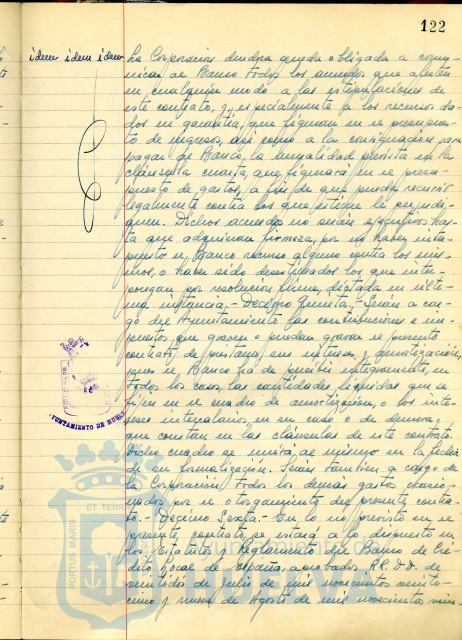 122
idem idem idem
La Corporacion deudora queda obligada a comu-
nicar al Banco todos los acuerdos que afecten
en cualquier modo a las estipulaciones de
este contrato, y especialmente a los recursos da-
dos en garantia, que figuran en el presupues-
to de ingresos, asi como a la consignacion para
pagar al Banco, la anualidad prevista en la
cláusula cuarta, que figurara en el presu-
puesto de gastos, a fin de que pueda recurrir
legalmente contra los que estime le perjudi-
quen. Dichos acuerdos no serán ejecutivos has-
ta que adquieran firmeza, por no haber inter-
puesto el Banco recurso alguno contra los mis-
mos, o haber sido desestimados los que inter-
pongan por resolucion firme, dictada en ulti-
ma instancia.- Decimo Quinta.- Serán a car-
go del Ayuntamiento las contribuciones e im-
puestos que graven o puedan gravar el presente
contrato de prestamo, sus intereses y amortización,
pues el Banco ha de percibir integramente, en
todos los casos, las cantidades liquidas que se
fijen en el cuadro de amortizacion, o los inte-
reses intercalarios, en su caso o de demora,
que constan en las cláusulas de este contrato.
Dicho cuadro se unirá al mismo en la fecha
de su formalización. Serán tambien a cargo de
la Corporación todos los demas gastos ocasio-
nados por el otorgamiento del presente contra-
to.- Decimo Sexta.- En lo no previsto en el
presente contrato, se estará a lo dispuesto en
los Estatutos y Reglamento del Banco de Cré-
dito Local de España, aprobados RR.DD. de
veintidos de julio de mil novecientos veinti-
cinco y nueve de Agosto de mil novecientos vein-
AYUNTAMIENTO DE HUELVA
PORTUS MARIS
ET TERRAE